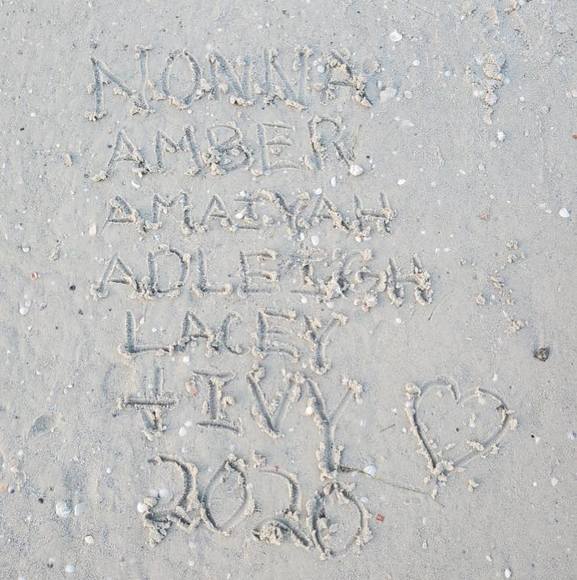 NONNA
AMBER
AMAIYAH
ADLEIGH
LACEY
+ IVY
2020